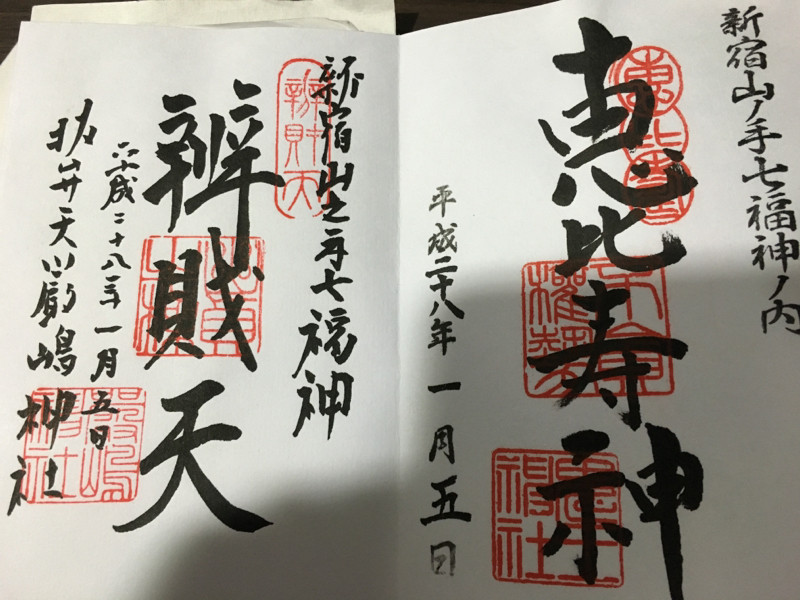 新宿山ノ手七福神ノ内
恵比寿
恵比寿神
平成二十八年 一月 五日
新宿山之手七福神
辨財天
辨財天
平成二十八年一月五日
抜弁天 厳嶋神社
厳嶋神社